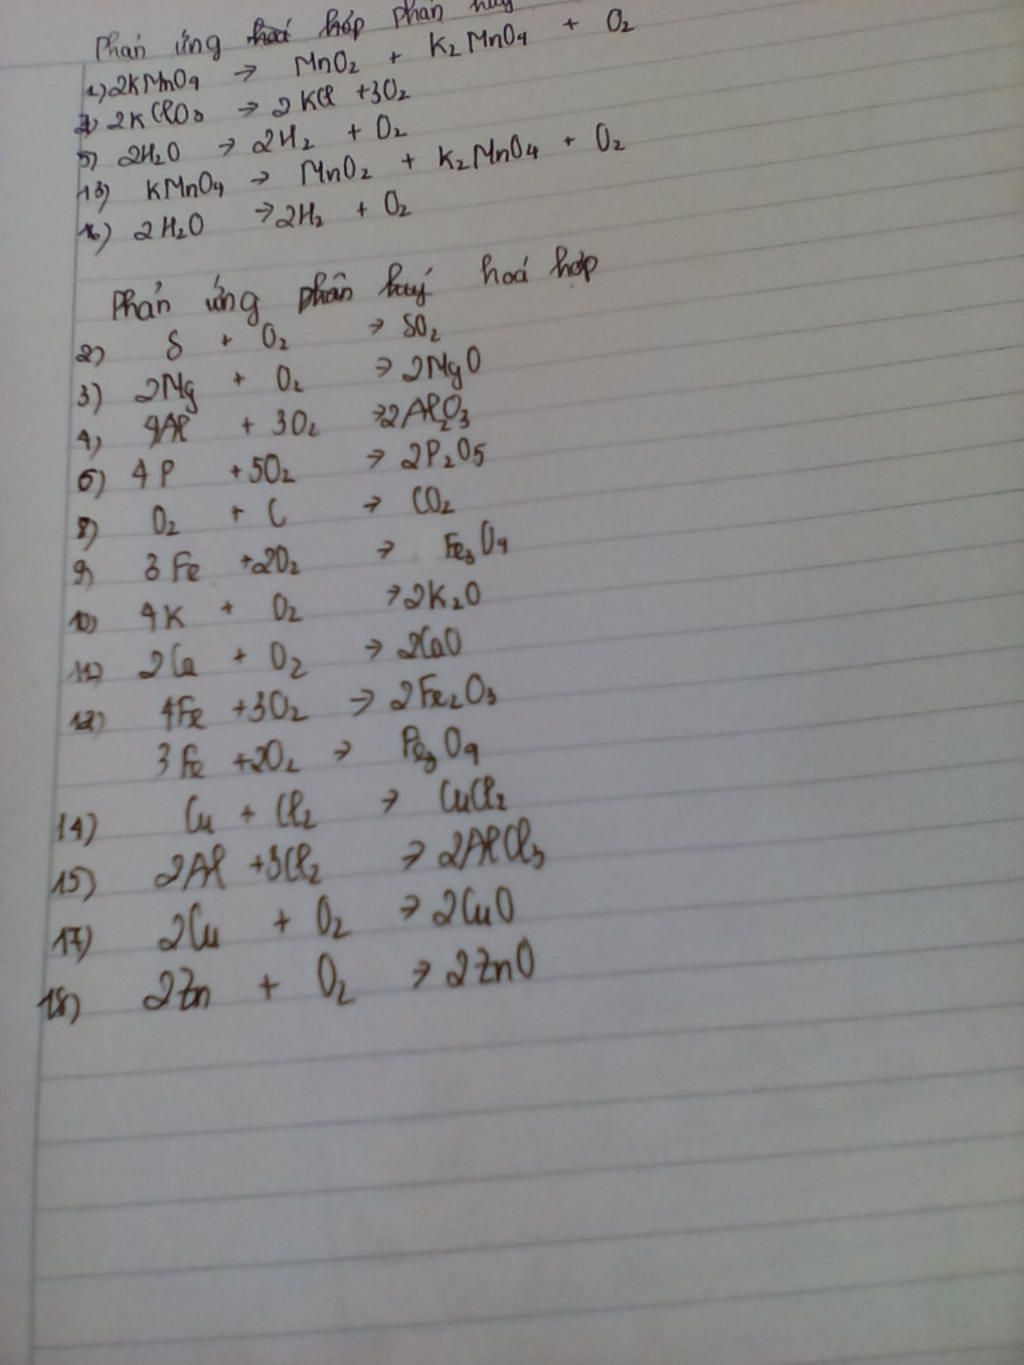 Phản ứng hoá hợp phân huỷ
1) 2KMnO4 → MnO2 + K2MnO4 + O2
7) 2KClO3 → 2KCl + 3O2
5) 2H2O → 2H2 + O2
13) KMnO4 → MnO2 + K2MnO4 + O2
16) 2H2O → 2H2 + O2
Phản ứng phân huỷ hoá hợp
2) S + O2 → SO2
3) 2Mg + O2 → 2MgO
4) 4Al + 3O2 → 2Al2O3
6) 4P + 5O2 → 2P2O5
8) O2 + C → CO2
9) 3Fe + 2O2 → Fe3O4
10) 4K + O2 → 2K2O
11) 2Ca + O2 → 2CaO
12) 4Fe + 3O2 → 2Fe2O3
3Fe + 2O2 → Fe3O4
14) Cu + Cl2 → CuCl2
15) 2Al + 3Cl2 → 2AlCl3
17) 2Cu + O2 → 2CuO
18) 2Zn + O2 → 2ZnO